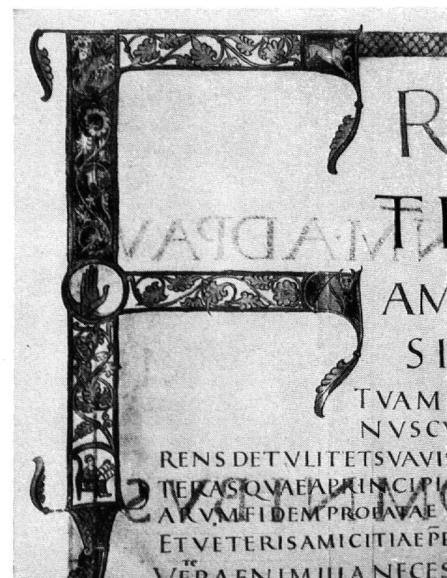 F R
T
AM
SI
TVAM
NVSCV
RENS DETVLITETSVAVI
TERASQVAEAPRINCIPI
ARVMFIDEMPROBATAE
ETVETERISAMICITIAEPE
VERAENIMILLANECES